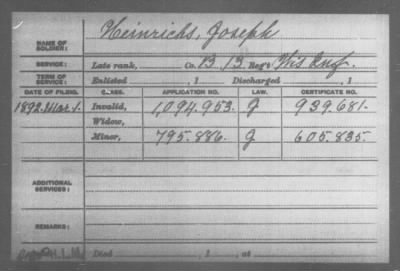 NAME OF SOLDIER: Heinrichs, Joseph
SERVICE: Late rank, Co. B, 13 Reg't Wis Inf.
TERM OF SERVICE: Enlisted , 1 Discharged , 1
DATE OF FILING. CLASS. APPLICATION NO. LAW. CERTIFICATE NO.
1892. Mar. 1. Invalid, 1,094.953. J 939.681.
Widow,
Minor, 795.886. J 605.835.
ADDITIONAL SERVICES:
REMARKS:
Died , 1 , at